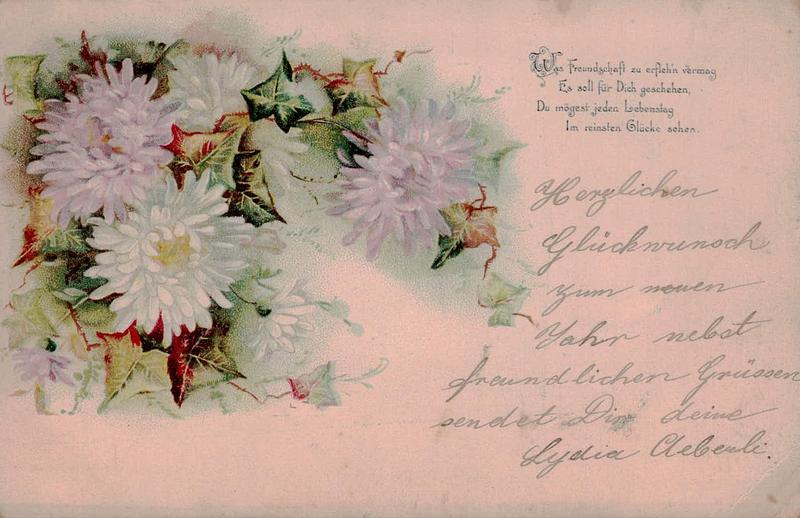 Was Freundschaft zu erfleh'n vermag
Es soll für Dich geschehen,
Du mögest jeden Lebenstag
Im reinsten Glücke sehen.
Herzlichen
Glückwunsch
zum neuen
Jahr nebst
freundlichen Grüssen
sendet Dir deine
Lydia Aeberli.